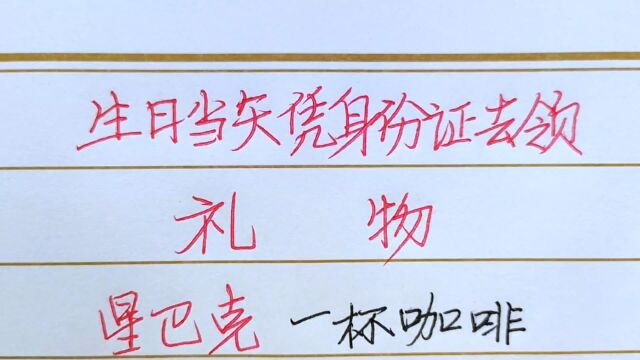 生日当天凭身份证去领
礼 物
星巴克 一杯咖啡